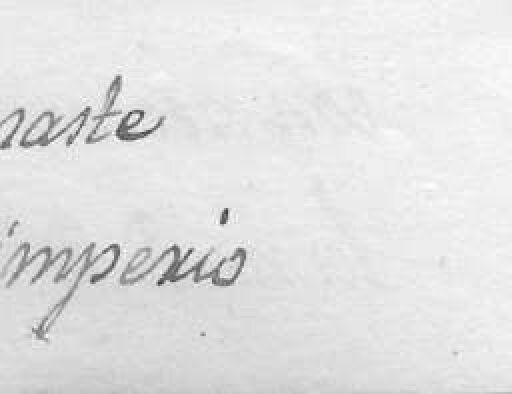 raste
imperio